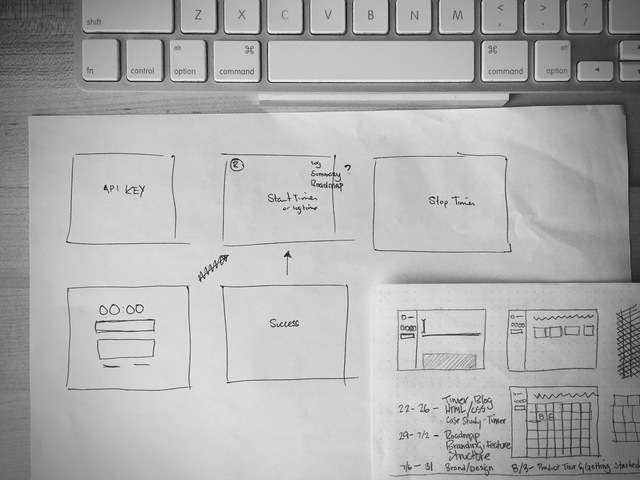 shift
Z X C V B N M < , > . ? /
fn control alt option ⌘ command ⌘ command alt option
API KEY
R
Log
Summary ?
Roadmap
Start Timer
or log time
Stop Timer
00:00
Success
22-26 - Timer, Blog
HTML/CSS
Case Study - Timer
29-7/2 - Roadmap
Branding, Feature
Structure
7/6 - 31 Brand/Design 8/3 - Product Tour & Getting Started